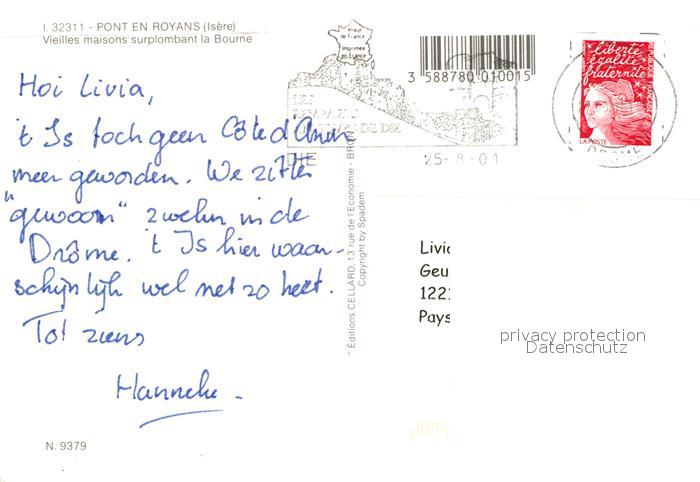 I. 32311 - PONT EN ROYANS (Isère)
Vieilles maisons surplombant la Bourne
Hoi Livia,
't Is toch geen Côte d'Azur
meer geworden. We zitten
"gewoon" in de
Drôme. 't Is hier waar-
schijnlijk wel net zo heet.
Tot ziens
Hanneke.
N. 9379
" Éditions CELLARD, 13 rue de l'Economie - BRON
Copyright by Spadem
Imprimée
en France
3 588780 010015
DIE
25-8-01
liberté
égalité
fraternité
LA POSTE
DROME
Livi
Geu
122
Pays
privacy protection
Datenschutz